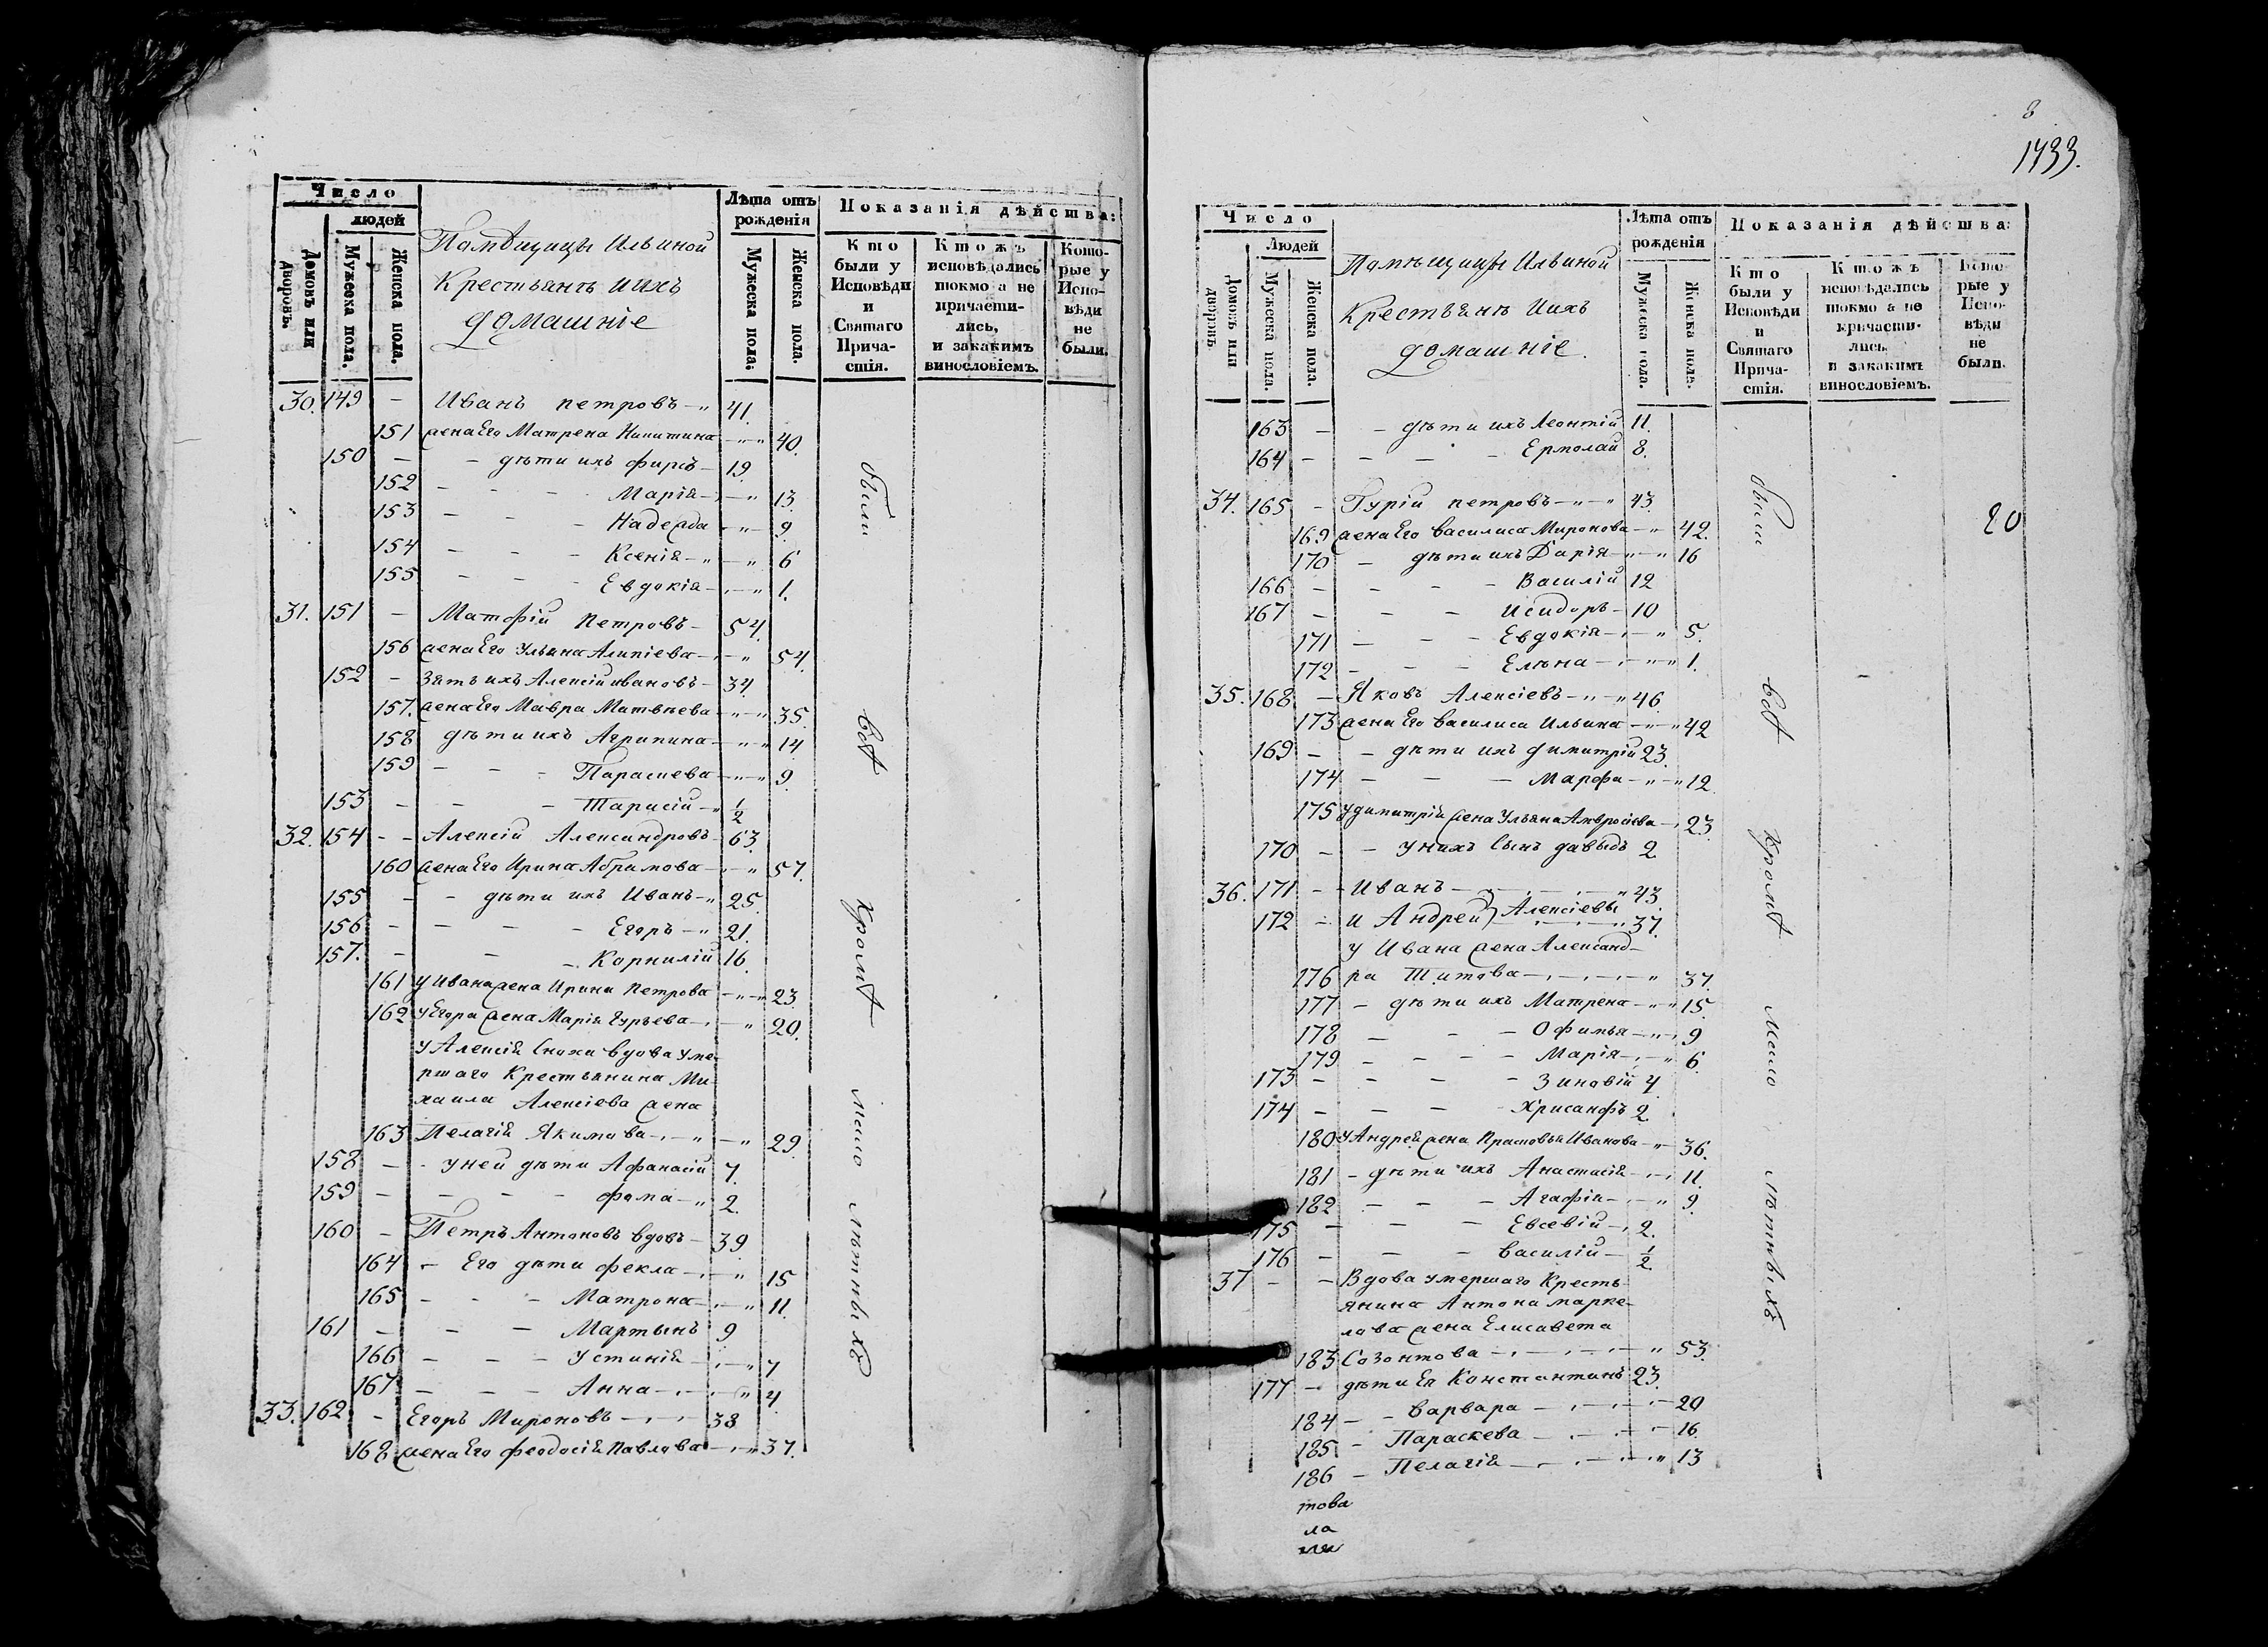 Число
людей
Домовъ или дворовъ.
Мужеска пола.
Женска пола.
Помѣщицы Ильиной
Крестьянѣ и ихъ
домашніе
Лѣта отъ рожденія
Мужеска пола.
Женска пола.
Показанія дѣйства:
Кто были у Исповѣди и Святаго Прича-стія.
Ктожъ исповѣдались токмо а не причасти-лись, и закакимъ винословіемъ.
Кото-рые у Испо-вѣди не были.
30. 149 - Иванъ петровъ 41.
151 жена Его Матрена Никитина 40.
150 - дѣти ихъ фирсъ 19.
152 - Марія 13.
153 - Надежда 9.
154 - Ксенія 6
155 - Евдокія 1.
31. 151 - Матфій Петровъ 54.
156 жена Его Ульяна Алипіева 54.
152 - Зять ихъ Алексій ивановъ 34.
157. жена Его Мавра Матвѣева 35.
158 дѣти ихъ Агрипина 14.
159 - Параскева 9.
153 - Тарасій ½
32. 154 - Алексій Александровъ 63.
160 жена Его Ирина Абрамова 57.
155 - дѣти ихъ Иванъ 25.
156 - Егоръ 21.
157. - Корнилій 16.
161 у Ивана жена Ирина Петрова 23.
162 у Егора жена Марія Гурьева 20.
у Алексія сноха вдова уме-
ршаго Крестьянина Ми-
хаила Алексіева жена
163 Пелагія Якимова 29.
158 - у ней дѣти Афанасій 7.
159 - фома 2.
160 - Петръ Антоновъ вдовъ 39.
164 - Его дѣти фекла 15
165 - Матрона 11.
161 - Мартынъ 9
166 - Устинія 7
167 - Анна 4.
33. 162 - Егоръ Мироновъ 38
168 жена Его феодосія Павлова 37.
были всѣ кромѣ мало лѣтныхъ
8
1433.
Число
Людей
Домовъ или дворовъ.
Мужеска пола.
Женска пола.
Помѣщицы Ильиной
Крестьянѣ и ихъ
домашніе.
Лѣта отъ рожденія
Мужеска пола.
Женска пола.
Показанія дѣйства:
Кто были у Исповѣди и Святаго Прича-стія.
Ктожъ исповѣдались токмо а не причасти-лись, и закакимъ винословіемъ.
Кото-рые у Испо-вѣди не были.
163 - дѣти ихъ Леонтій 11.
164 - Ермолай 8.
34. 165 - Гурій петровъ 43.
169 жена Его Василиса Миронова 42.
170 - дѣти ихъ Дарія 16
166 - Василій 12
167 - Исидоръ 10
171 - Евдокія 5.
172 - Елѣна 1.
35. 168 - Яковъ Алексіевъ 46.
173 жена Его Василиса Ильина 42
169 - дѣти ихъ димитрій 23.
174 - Марфа 12.
175 у димитрія жена Ульяна Амвросіева 23.
170 - у нихъ сынъ давыдъ 2
36. 171 - Иванъ 43.
172 - и Андрей } Алексіевы 37.
у Ивана жена Александ-
176 ра Титова 37.
177 - дѣти ихъ Матрена 15.
178 - Офимья 9
179 - Марія 6.
173 - Зиновій 4
174 - Хрисанфъ 2.
180 у Андрея жена Прасковья Иванова 36.
181 - дѣти ихъ Анастасія 11.
182 - Агафія 9.
175 - Евсевій 2.
176 - Василій ½
37 - Вдова умершаго Кресть-
янина Антона марке-
лова жена Елисавета
183 Созонтова 53.
177 - дѣти Ея Константинъ 23.
184 - Варвара 20
185 - Параскева 16.
186 - Пелагія 13
това
ла
были всѣ кромѣ мало лѣтныхъ
20